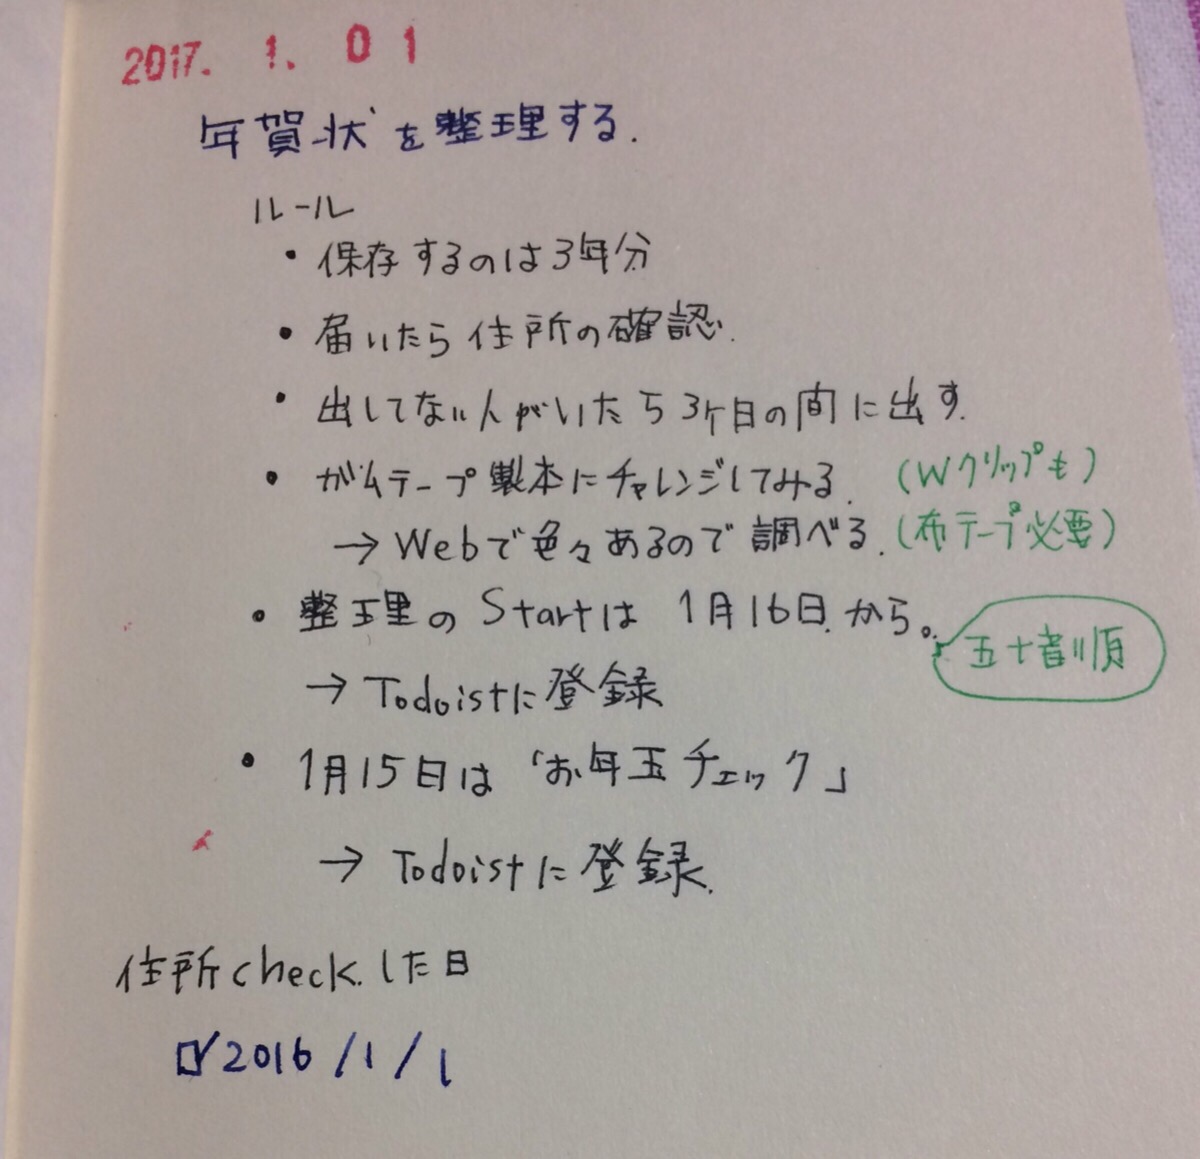 2017. 1. 01
年賀状を整理する.
ルール
・保存するのは3年分
・届いたら住所の確認.
・出してない人がいたら3ケ日の間に出す.
・ガムテープ製本にチャレンジしてみる. (Wクリップも)
→Webで色々あるので調べる. (布テープ必要)
・整理のStartは 1月16日.から。
五十音順
→Todoistに登録
・1月15日は「お年玉チェック」
→Todoistに登録.
住所check.した日
☑2016/1/1